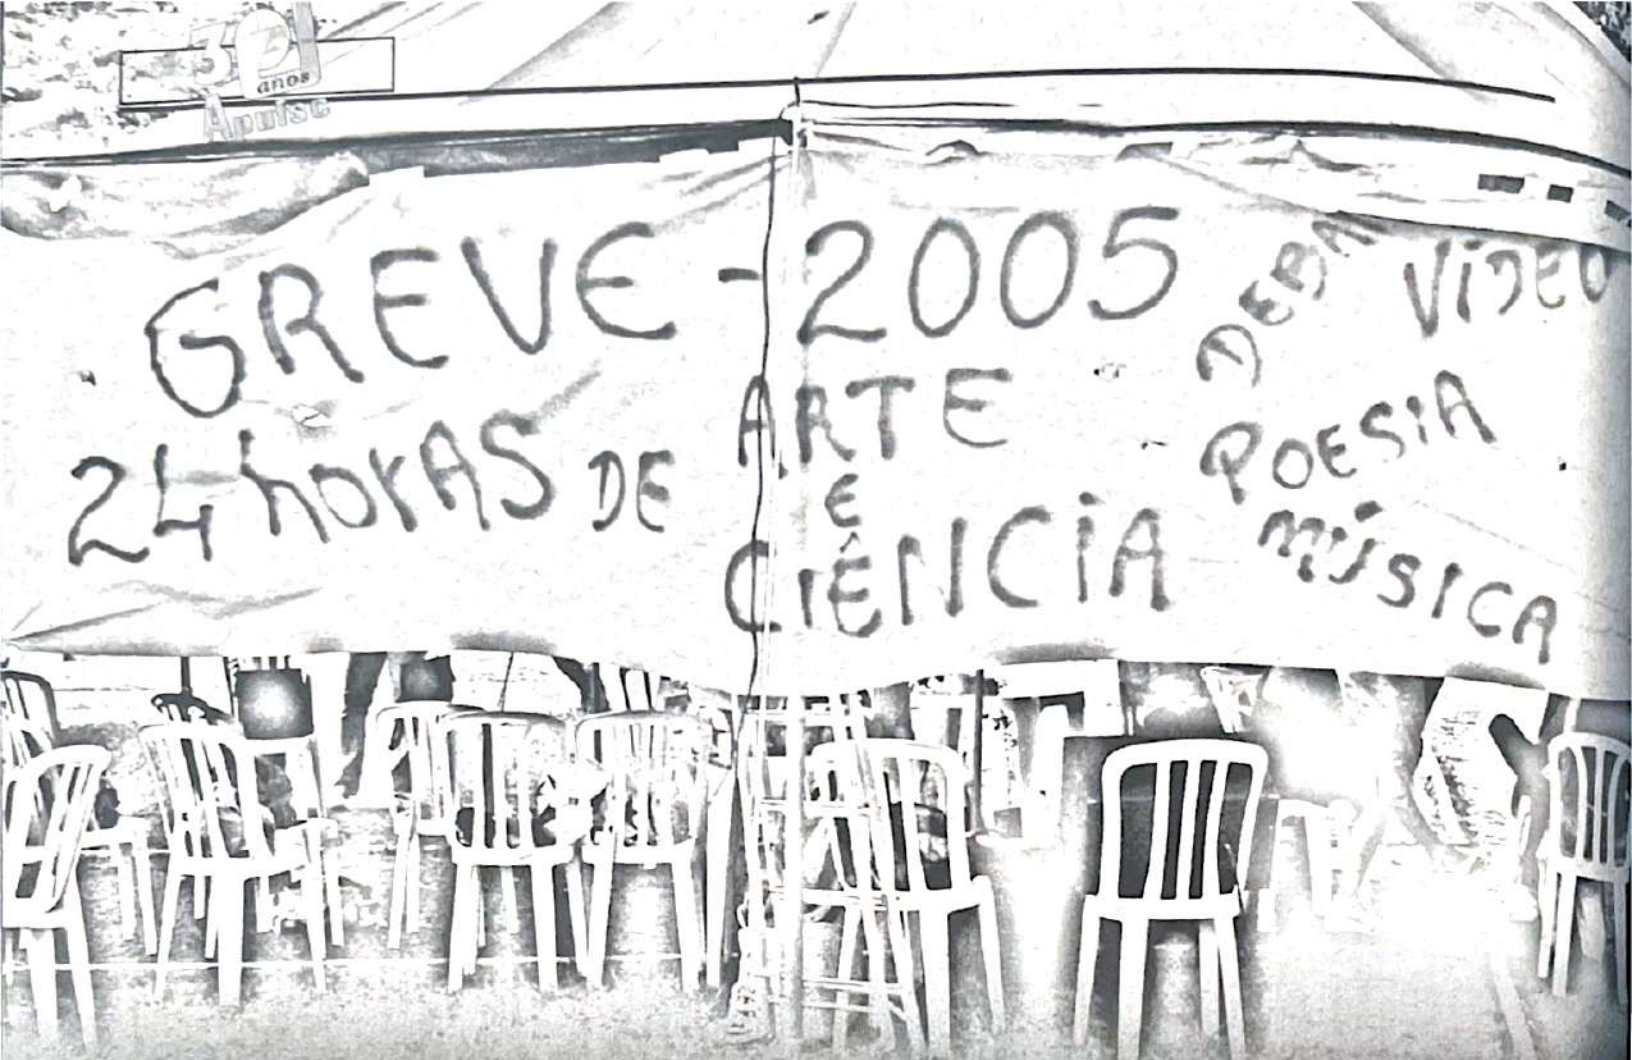 30
anos
Apufsc
GREVE - 2005
24 horAS DE ARTE
E
CIÊNCIA
VÍDEO
POESIA
MÚSICA